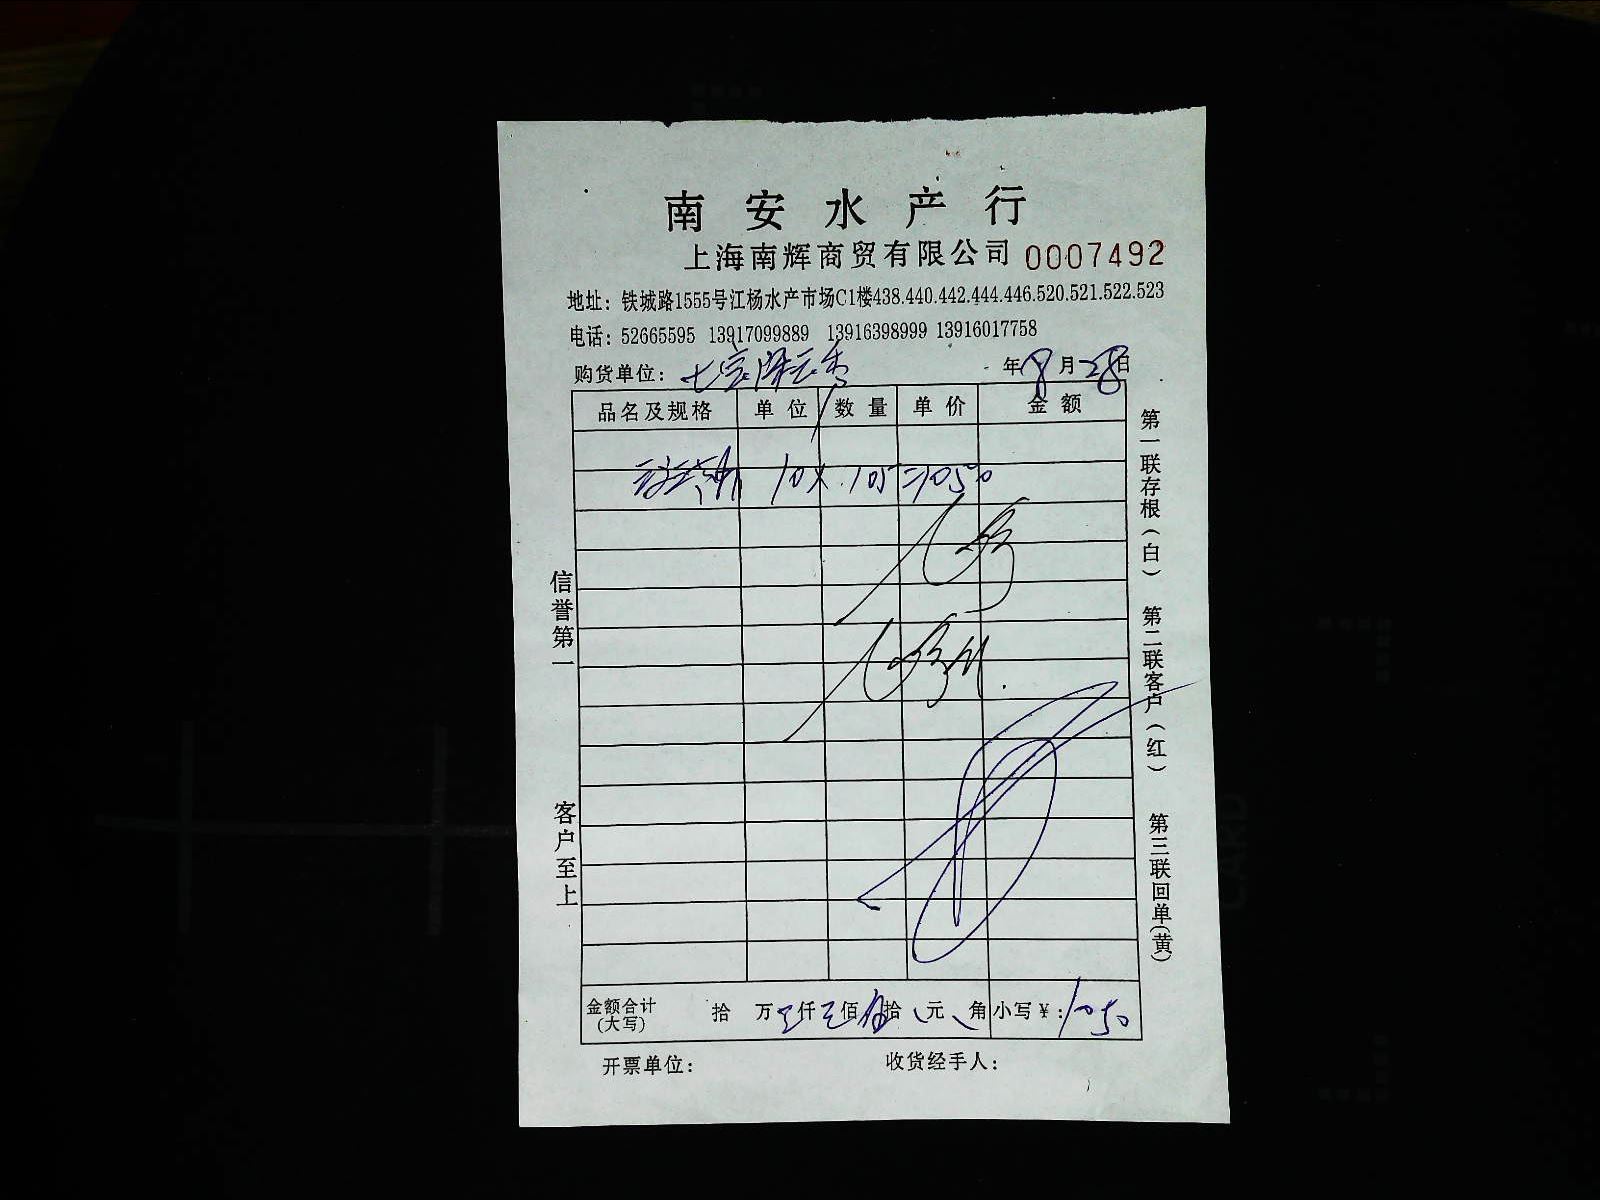 南安水产行
上海南辉商贸有限公司 0007492
地址：铁城路1555号江杨水产市场C1楼438.440.442.444.446.520.521.522.523
电话：52665595 13917099889 13916398999 13916017758
购货单位： 年 8 月 28 日
品名及规格 单位 数量 单价 金额
10 × 105 = 1050
金额合计(大写) 拾 万 仟 佰 拾 元 角 小写￥：1050
开票单位： 收货经手人：
信誉第一
客户至上
第一联存根(白)
第二联客户(红)
第三联回单(黄)